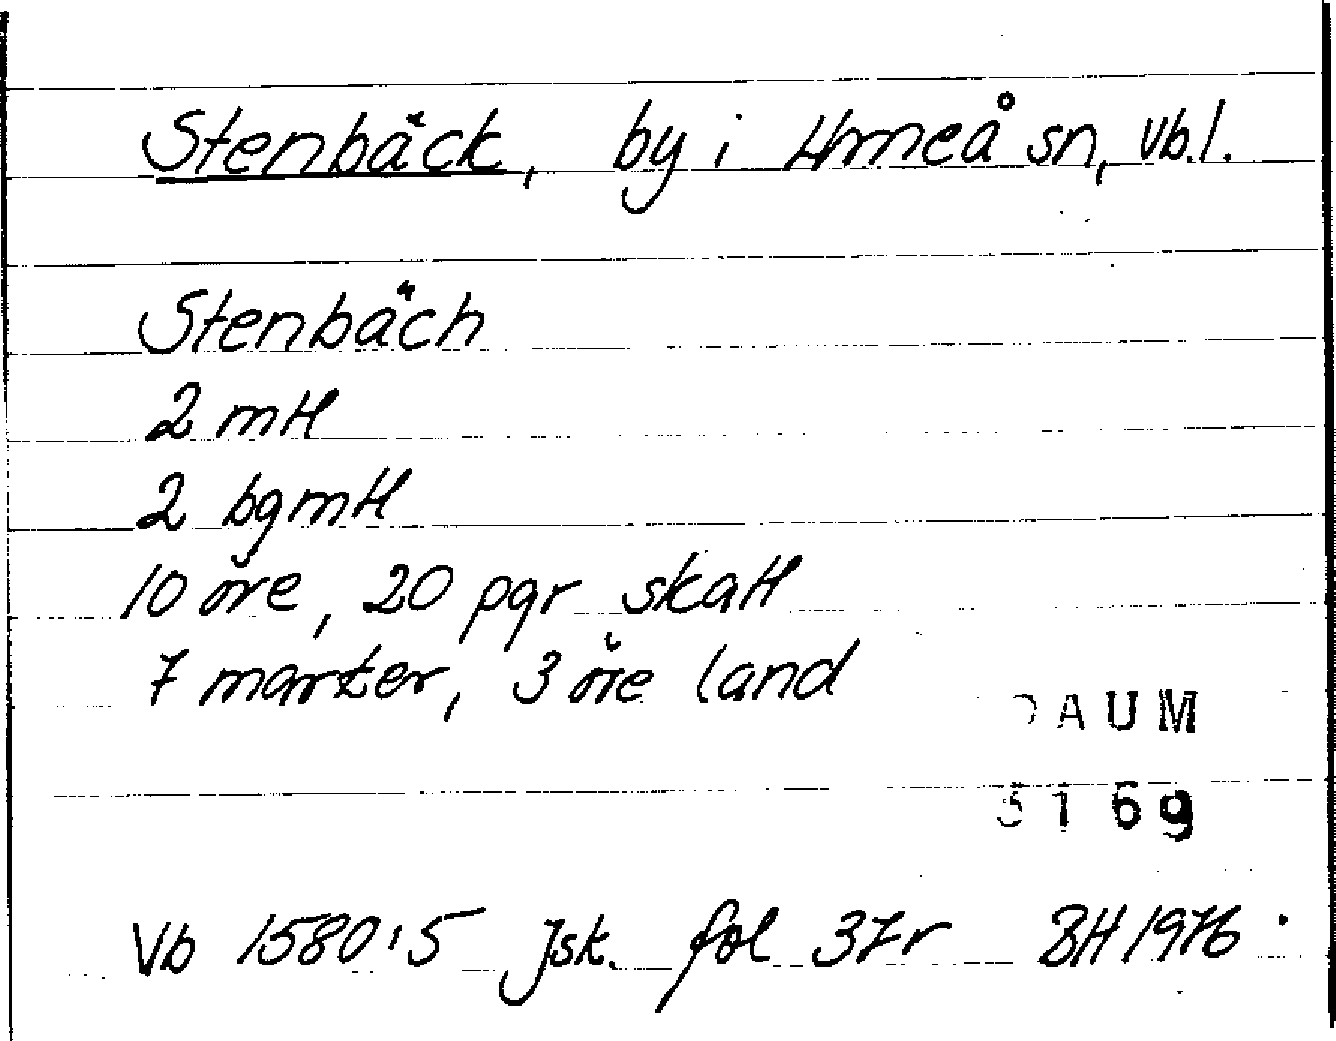 Stenbäck, by i Umeå sn, Vb.l.
Stenbäch
2 mtl
2 bgmtl
10 öre, 20 pgr skatt
7 marker, 3 öre land
DAUM
5169
Vb 1580:5 Jsk. fol 37r BH 1976